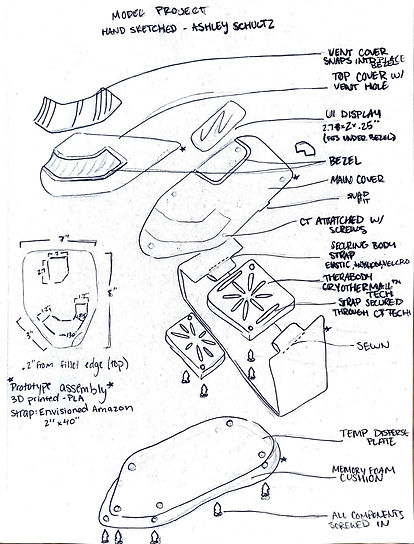 MODEL PROJECT
HAND SKETCHED - ASHLEY SCHULTZ
VENT COVER
SNAPS INTO PLACE
BEZEL
TOP COVER W/
VENT HOLE
UI DISPLAY
(FITS UNDER BEZEL)
BEZEL
MAIN COVER
SNAP
FIT
CT ATTATCHED W/
SCREWS
SECURING BODY
STRAP
ELASTIC +NYLON+VELCRO
THERABODY
CRYOTHERMAL™
TECH
STRAP SECURED
THROUGH CT TECH
SEWN
7"
8"
.2" from fillet edge (top)
*Prototype assembly*
3D printed - PLA
Strap: Envisioned Amazon
2" x 40"
TEMP DISPERSE
PLATE
MEMORY FOAM
CUSHION
ALL COMPONENTS
SCREWED IN